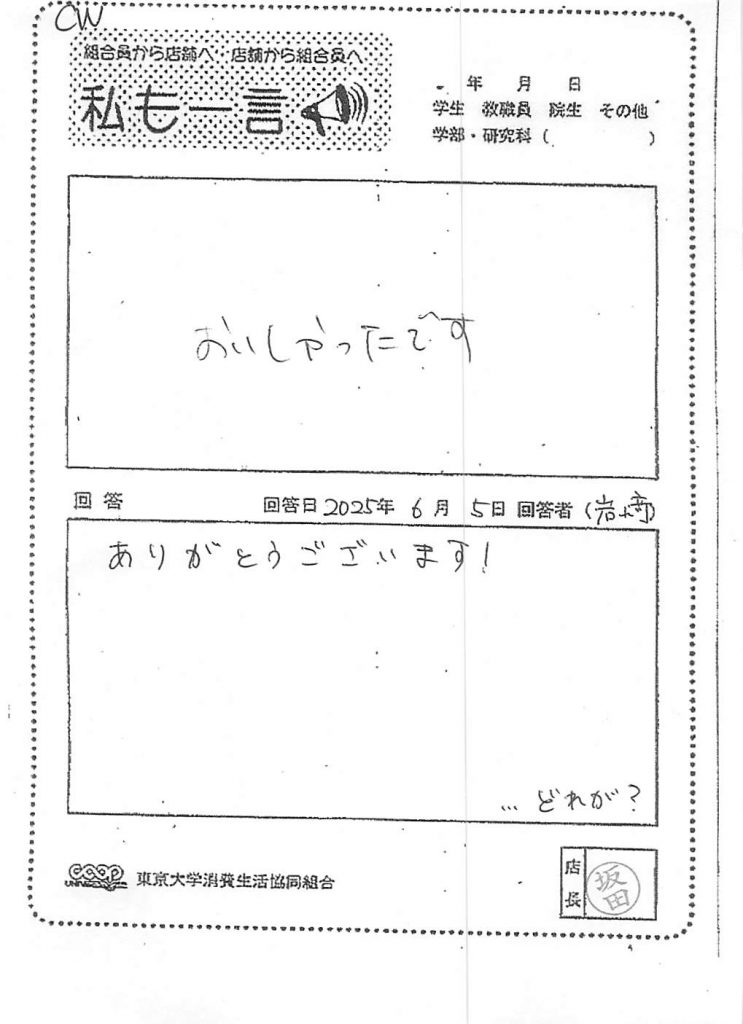 CW
組合員から店舗へ・店舗から組合員へ
私も一言
年 月 日
学生 教職員 院生 その他
学部・研究科( )
おいしかったです
回答 回答日 2025年 6月 5日 回答者(岩崎)
ありがとうございます!
... どれが?
coop
東京大学消費生活協同組合
店長
坂田